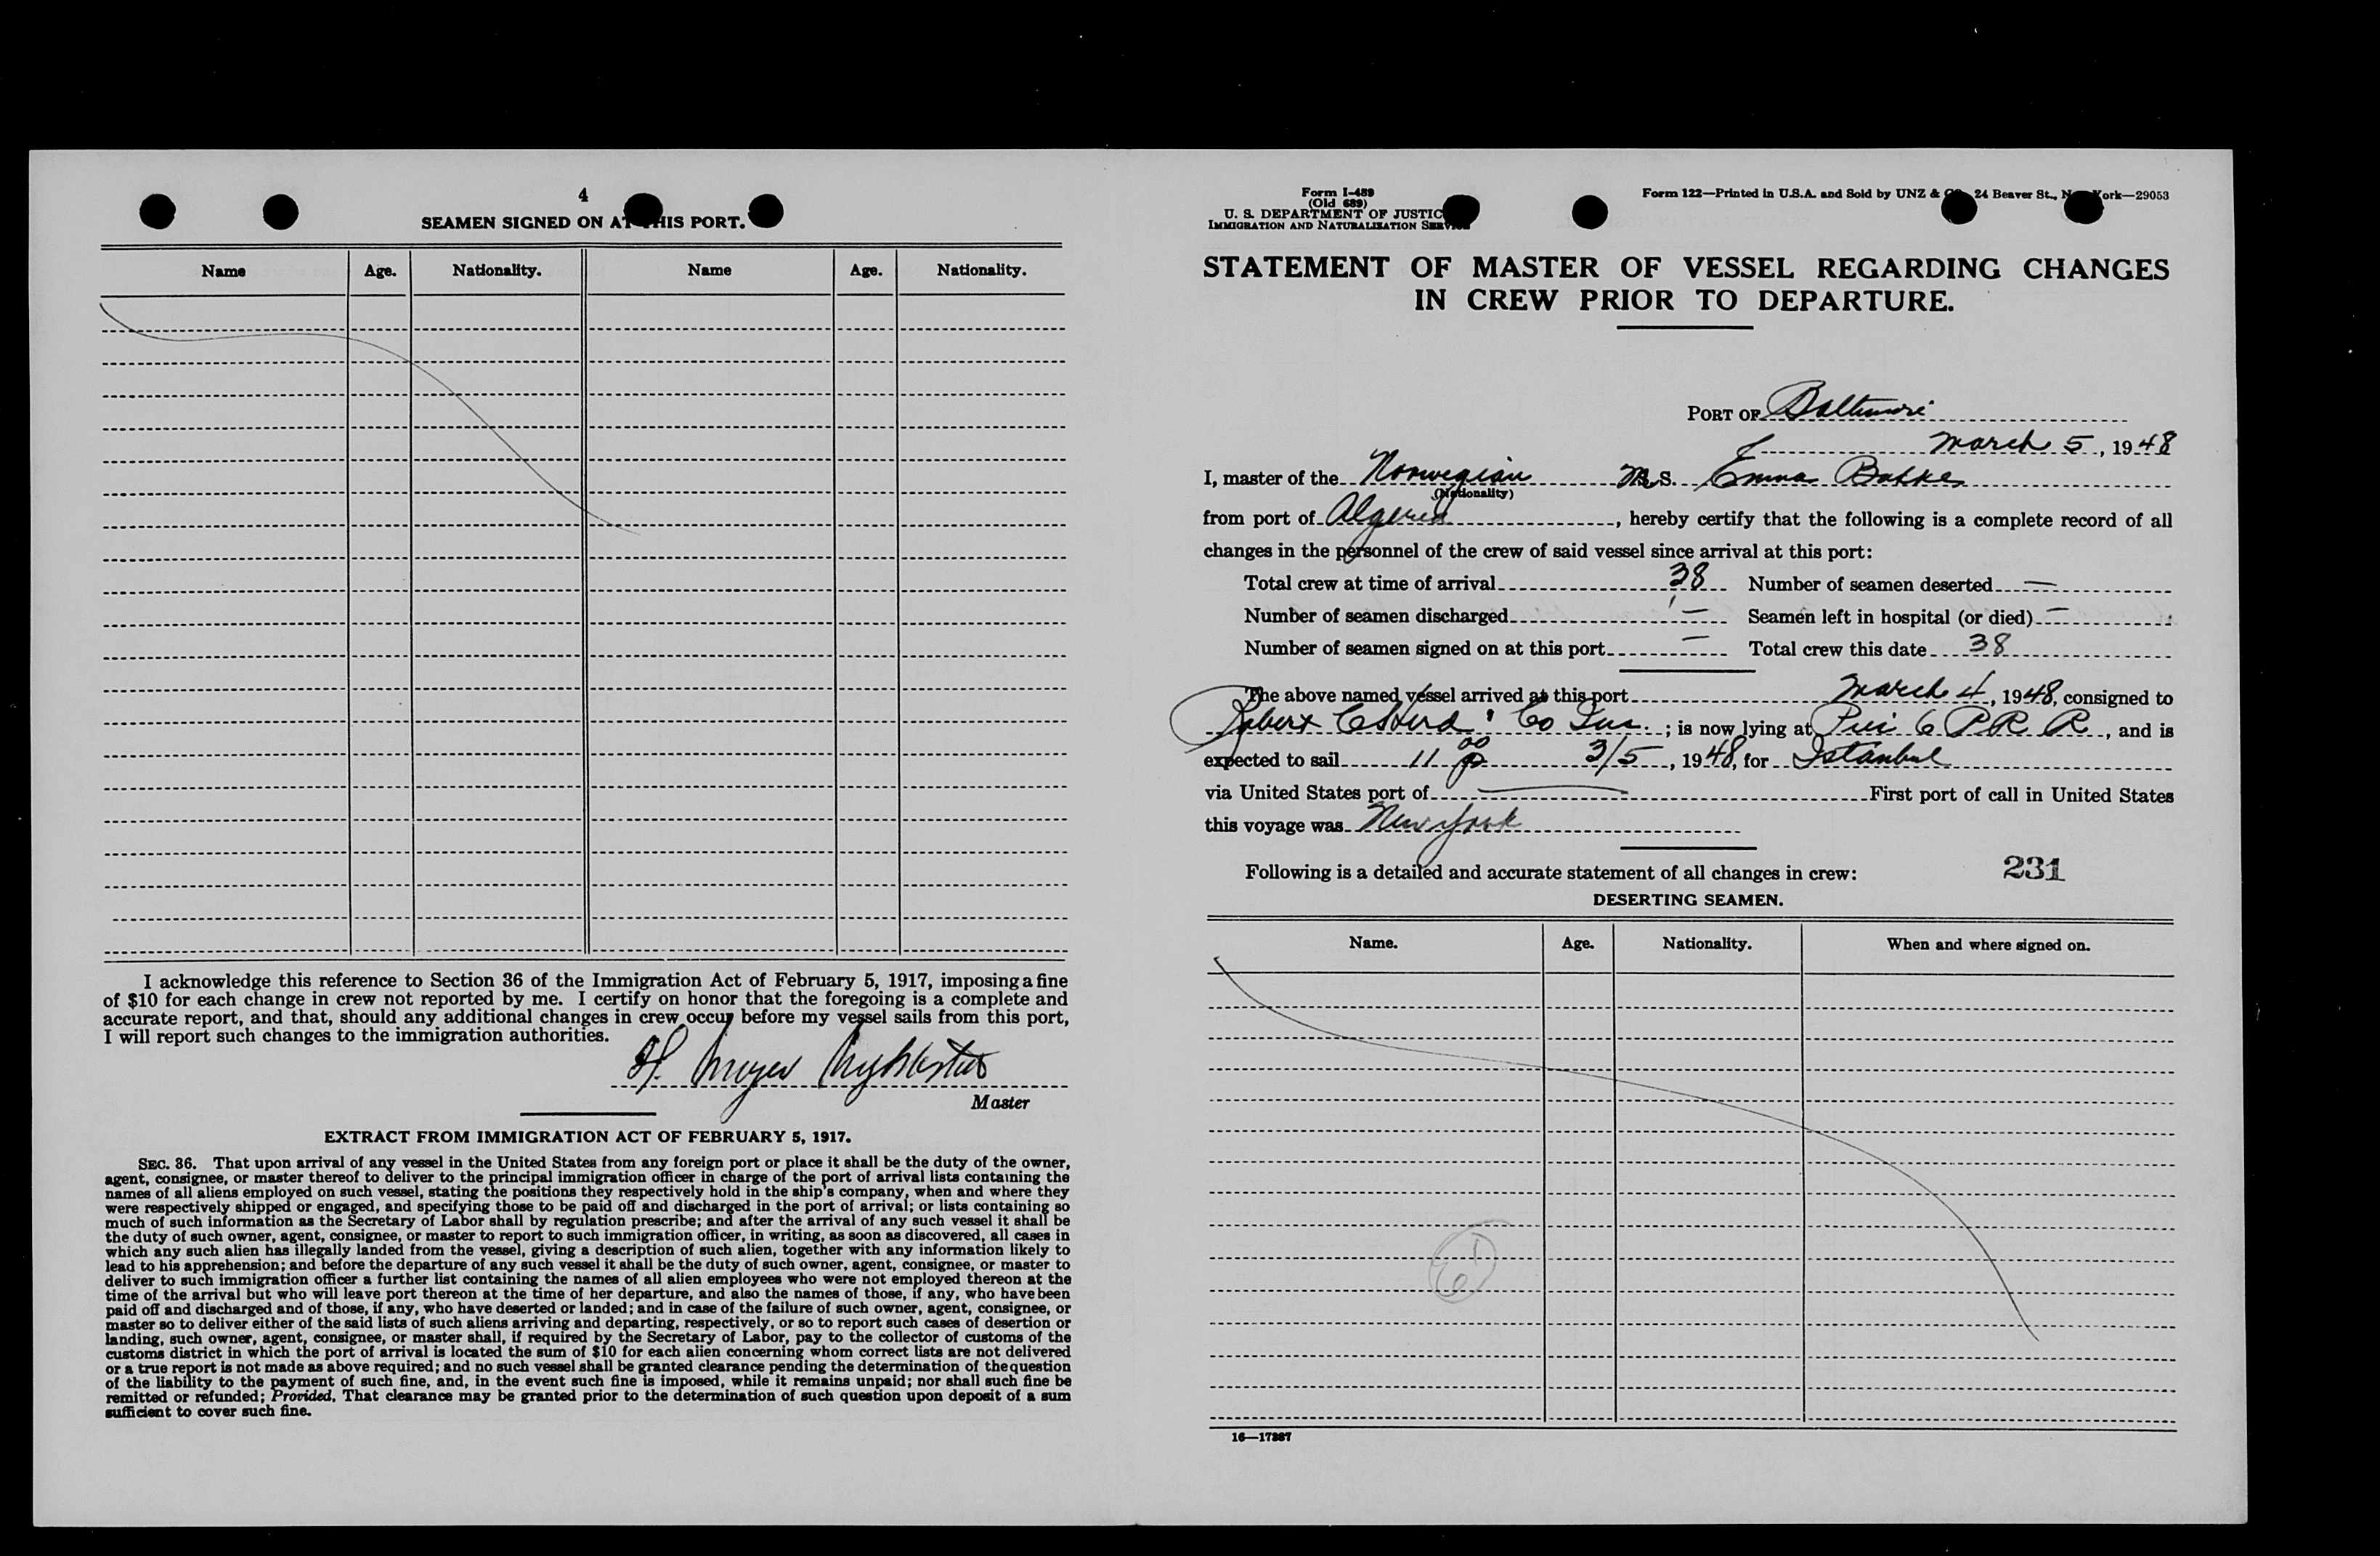 4
SEAMEN SIGNED ON AT THIS PORT.
Name Age. Nationality. Name Age. Nationality.
I acknowledge this reference to Section 36 of the Immigration Act of February 5, 1917, imposing a fine
of $10 for each change in crew not reported by me. I certify on honor that the foregoing is a complete and
accurate report, and that, should any additional changes in crew occur before my vessel sails from this port,
I will report such changes to the immigration authorities.
H. Meyer
Master
EXTRACT FROM IMMIGRATION ACT OF FEBRUARY 5, 1917.
SEC. 36. That upon arrival of any vessel in the United States from any foreign port or place it shall be the duty of the owner,
agent, consignee, or master thereof to deliver to the principal immigration officer in charge of the port of arrival lists containing the
names of all aliens employed on such vessel, stating the positions they respectively hold in the ship's company, when and where they
were respectively shipped or engaged, and specifying those to be paid off and discharged in the port of arrival; or lists containing so
much of such information as the Secretary of Labor shall by regulation prescribe; and after the arrival of any such vessel it shall be
the duty of such owner, agent, consignee, or master to report to such immigration officer, in writing, as soon as discovered, all cases in
which any such alien has illegally landed from the vessel, giving a description of such alien, together with any information likely to
lead to his apprehension; and before the departure of any such vessel it shall be the duty of such owner, agent, consignee, or master to
deliver to such immigration officer a further list containing the names of all alien employees who were not employed thereon at the
time of the arrival but who will leave port thereon at the time of her departure, and also the names of those, if any, who have been
paid off and discharged and of those, if any, who have deserted or landed; and in case of the failure of such owner, agent, consignee, or
master so to deliver either of the said lists of such aliens arriving and departing, respectively, or so to report such cases of desertion or
landing, such owner, agent, consignee, or master shall, if required by the Secretary of Labor, pay to the collector of customs of the
customs district in which the port of arrival is located the sum of $10 for each alien concerning whom correct lists are not delivered
or a true report is not made as above required; and no such vessel shall be granted clearance pending the determination of the question
of the liability to the payment of such fine, and, in the event such fine is imposed, while it remains unpaid; nor shall such fine be
remitted or refunded; Provided, That clearance may be granted prior to the determination of such question upon deposit of a sum
sufficient to cover such fine.
Form I-489
(Old 689)
U. S. DEPARTMENT OF JUSTICE
IMMIGRATION AND NATURALIZATION SERVICE
Form 122—Printed in U.S.A. and Sold by UNZ & CO., 24 Beaver St., New York—29053
STATEMENT OF MASTER OF VESSEL REGARDING CHANGES
IN CREW PRIOR TO DEPARTURE.
PORT OF Baltimore
March 5, 1948
I, master of the Norwegian M.S. Emma Bakke
(Nationality)
from port of Algeria, hereby certify that the following is a complete record of all
changes in the personnel of the crew of said vessel since arrival at this port:
Total crew at time of arrival 38 Number of seamen deserted —
Number of seamen discharged — Seamen left in hospital (or died) —
Number of seamen signed on at this port — Total crew this date 38
The above named vessel arrived at this port March 4, 1948, consigned to
Robert C Herd & Co Inc.; is now lying at Pier 6 P R R, and is
expected to sail 11 00 p 3/5, 1948, for Istanbul
via United States port of — First port of call in United States
this voyage was New York
Following is a detailed and accurate statement of all changes in crew: 231
DESERTING SEAMEN.
Name. Age. Nationality. When and where signed on.
16—17387